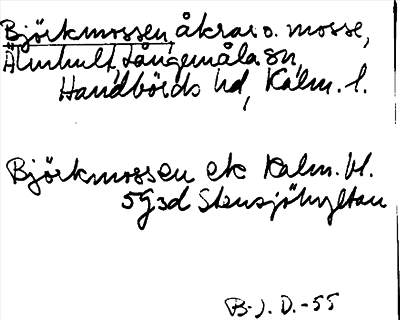 Björkmossen, åkrar o. mosse,
Älmhult, Långemåla sn,
Handbörds hd, Kalm. l.
Björkmossen ek Kalm. bl.
5G3d Stensjöhyltan
B. J. D. -55